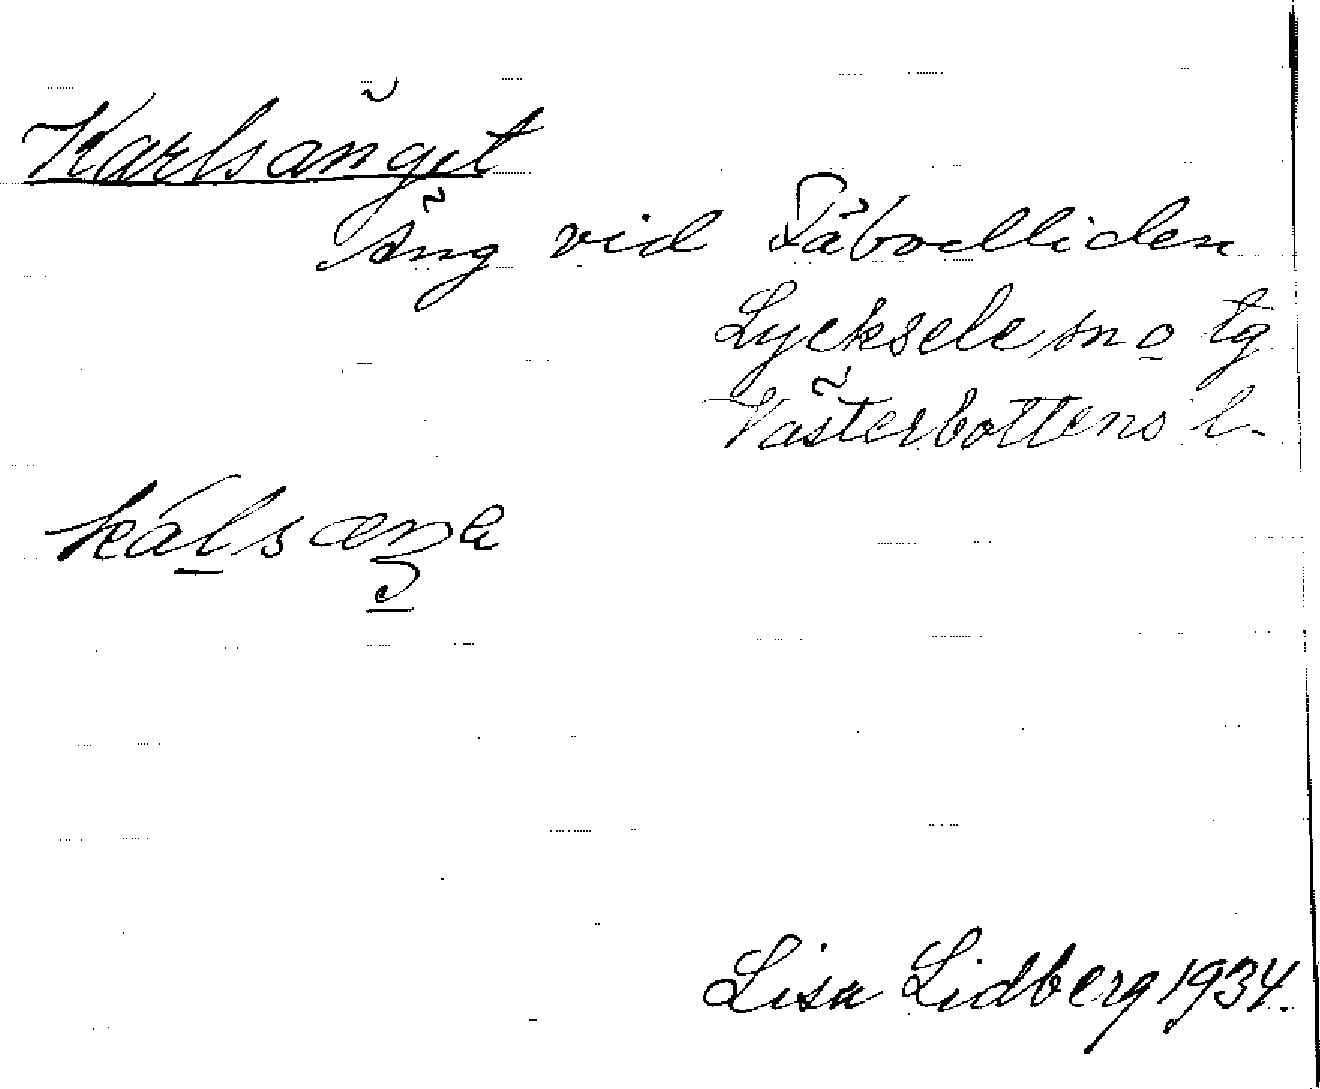 Karlsänget
Äng vid Fäbolliden
Lycksele sn o tg
Västerbottens l.
kálsæŋɐ
Lisa Lidberg 1934.